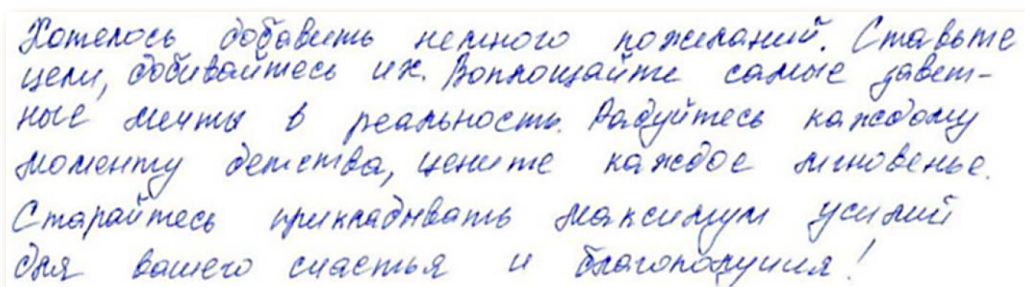 Хотелось добавить немного пожеланий. Ставьте
цели, добивайтесь их. Воплощайте самые завет-
ные мечты в реальность. Радуйтесь каждому
моменту детства, цените каждое мгновенье.
Старайтесь прикладывать максимум усилий
для вашего счастья и благополучия!